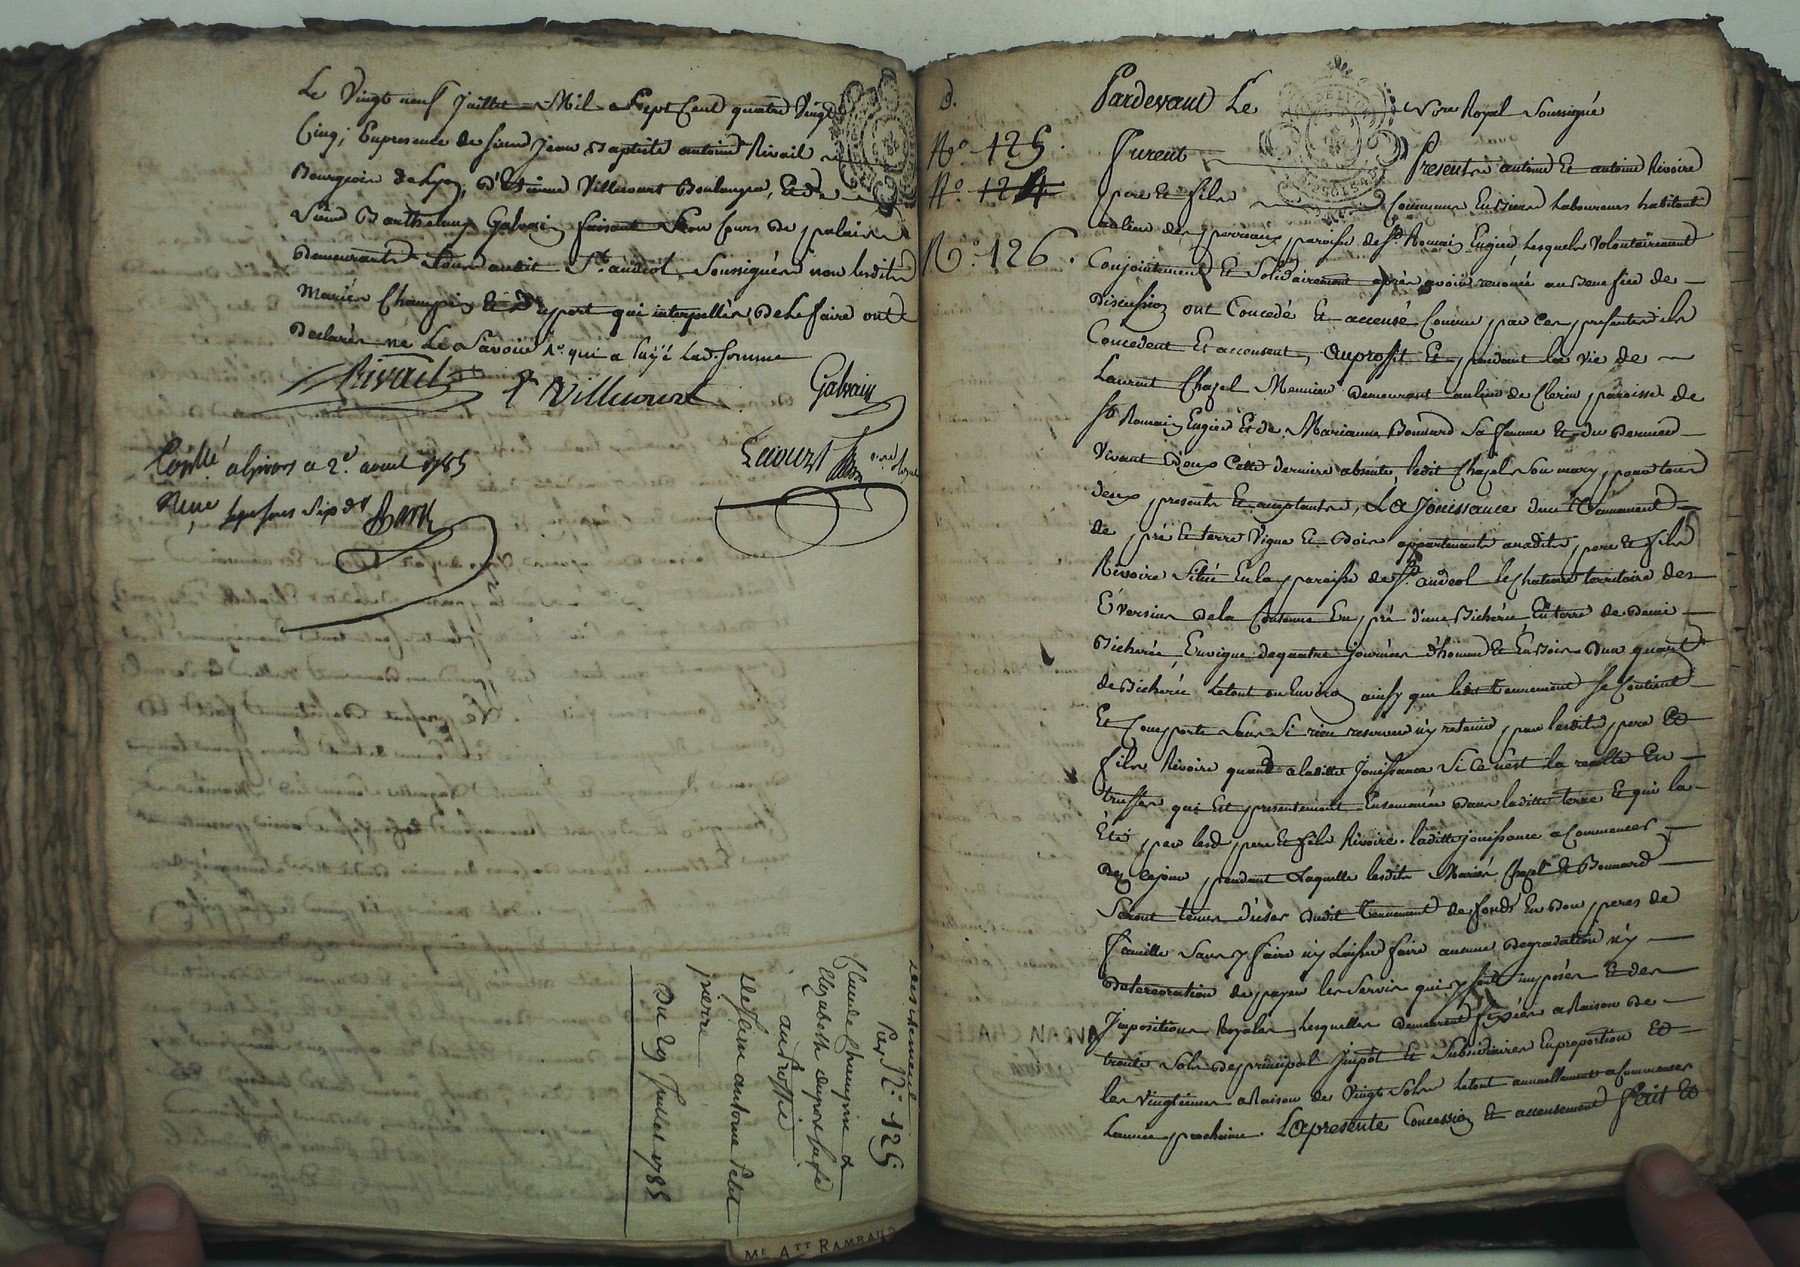 Le vingt neuf Juillet Mil Sept Cent quatre vingt
Cinq; En presence de sieur Jean Baptiste antoine Rivail
Bourgeois de Lyon, d'Etienne Villecourt Boulanger, Et de
sieur Barthelemy Galvain faisant Son Cours de palais
Demeurants tous audit St. andéol, Soussignés non lesdits
Mariés Champin Et Duport qui interpellés De Le faire ont
Declarés ne Le Savoir Ne. qui a payé Lad. somme
Rivail
Villecourt
Galvain
Lecourt
Conllé a Givors a 2d. aout 1785
Reçu
Per N.o 125
Claude Champin &
Elizabeth duport
au proffit
antoine Petit
pierre
Du 29 Juillet 1785
Me. Att RAMBAUD
D.
N.o 125.
N.o 124
N.o 126.
Pardevant Le Nore Royal Soussigné
Furent Presents antoine Et antoine Rivoire
pere Et fils Commune En Biens laboureurs habitants
au lieu des perreaux paroisse de St. Romain En gier, lesquels volontairement
Conjointement Et Solidairement après avoir renoncé au Benefice de
Discussion ont Concedé Et accensé Comme par Ces presentes ils
Concedent Et accensent, au proffit Et pendant la vie de
Laurent Chazel Meunier Demeurant au lieu de Clerin paroisse de
St. Romain En gier Et de Marianne Bonnard Sa femme Et du Dernier
vivant D'eux Cette derniere absente, ledit Chazel Son mary pour tous
deux present Et acceptant, La Jouissance d'un Tennement
de pré Et terre vigne Et Bois appartenants auxdits pere Et fils
Rivoire Situé En la paroisse de St. andeol le Chateau territoire des
Versins De la Contenue En pré d'une Bicherée, En terre de Demi
Bicherée, En vigne de quatre journées d'homme Et En Bois D'un quart
de Bicherée Le tout ou Environ ainsy que ledit Tennement Se Contient
Et Comporte Sans Si rien reserver n'y retenir par lesdits pere Et
fils Rivoire quand a laditte Jouissance Si Ce n'est la recolte En
trusses qui Est presentement Ensemencée Dans laditte terre Et qui l'a
Été par lesd. pere Et fils Rivoire. laditte jouissance a Commencer
Dez Ce jour pendant Laquelle lesdits Mariés Chazel Et Bonnard
Seront tenus D'user Dudit Tennement de fonds En Bon peres de
famille Sans y faire n'y Laisser faire aucune Degradation n'y
Deterioration de payer les Servis qui y sont imposés Et des
Impositions Royales, Lesquelles Demeurent fixées a Raison De
trente Sols De principal Jmpôt Et Subsidiaires En proportion Et
les vingtiemes a Raison de Vingt Sols le tout annuellement a Commencer
L'année prochaine. La presente Concession Et accensement fait Et